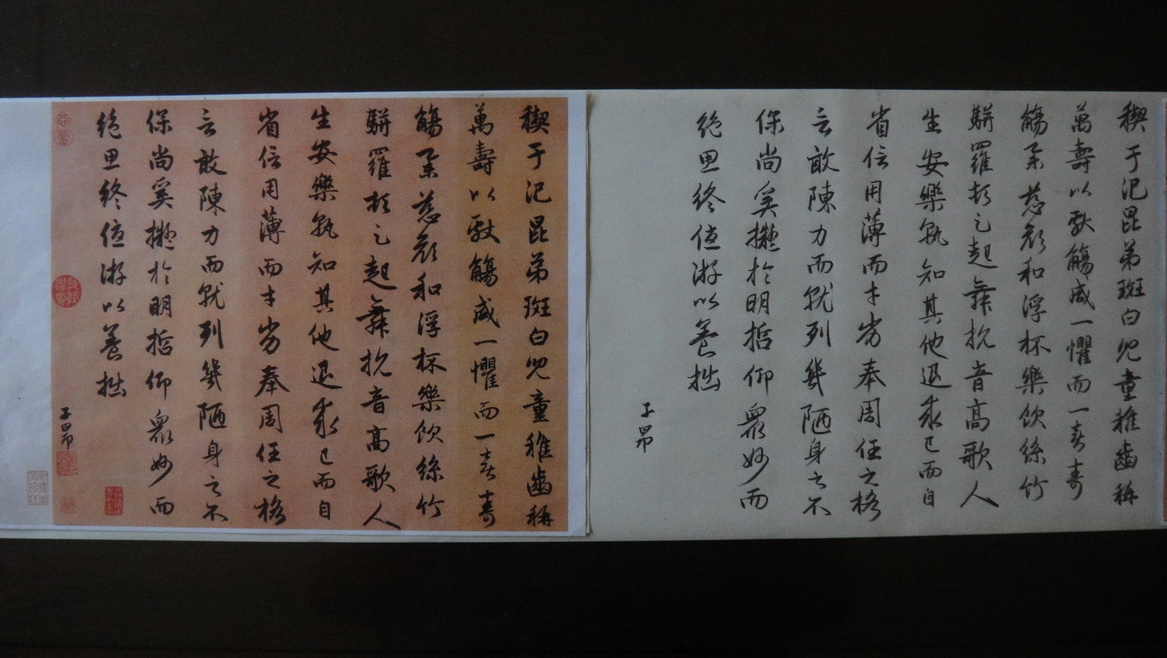 禊于汜昆弟斑白兒童稚齒稱
萬壽以獻觴咸一懼而一喜壽
觴舉慈顔和浮杯樂飲絲竹
駢羅頓足起舞抗音高歌人
生安樂孰知其他退求己而自
省信用薄而才劣奉周任之格
言敢陳力而就列幾陋身之不
保尚奚擬於明哲仰衆妙而
絶思終優游以養拙
子昂
禊于汜昆弟斑白兒童稚齒稱
萬壽以獻觴咸一懼而一喜壽
觴舉慈顔和浮杯樂飲絲竹
駢羅頓足起舞抗音高歌人
生安樂孰知其他退求己而自
省信用薄而才劣奉周任之格
言敢陳力而就列幾陋身之不
保尚奚擬於明哲仰衆妙而
絶思終優游以養拙
子昂